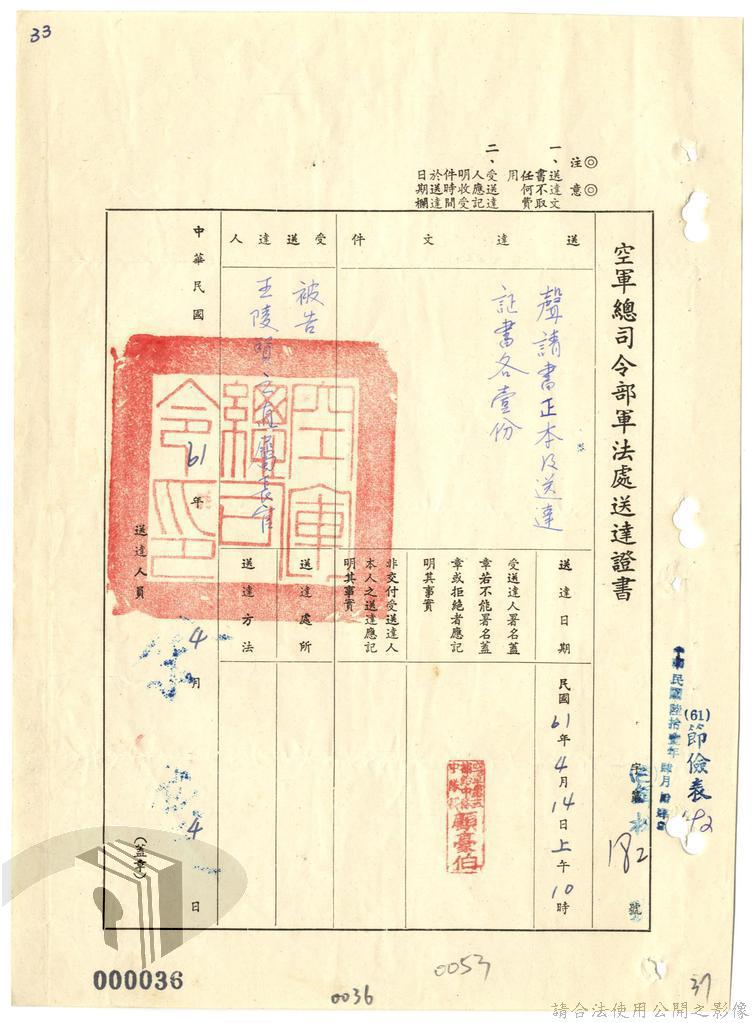 33
◎注意◎
一、送達文
書不取
任何費
用
二、受送達
人應記
明收受
件時間
於送達
日期欄
空軍總司令部軍法處送達證書
(61)
節儉表
字第
182
號
送達文件
聲請書正本及送達
証書各壹份
受送達人
被告
王陵
送達日期
民國61年4月14日上午10時
受送達人署名蓋
章若不能署名蓋
章或拒絕者應記
明其事實
顧豪伯
非交付受送達人
本人之送達應記
明其事實
送達處所
送達方法
空軍總司令印
中華民國61年4月4日
送達人員
(蓋章)
000036
0036
0053
37
請合法使用公開之影像